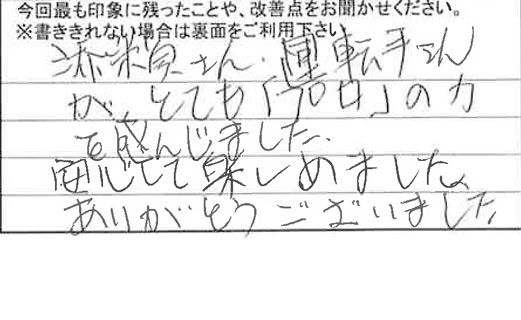 今回最も印象に残ったことや、改善点をお聞かせください。
※書ききれない場合は裏面をご利用下さい
添乗員さん、運転手さん
が、とても「プロ」の力
を感じました。
安心して楽しめました。
ありがとうございました